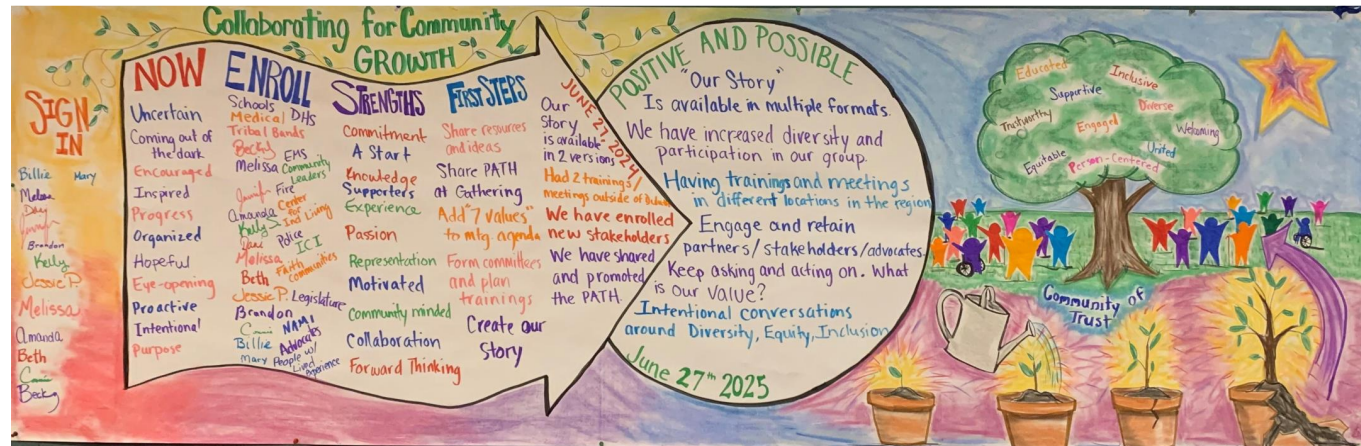 Collaborating for Community
GROWTH
SIGN
IN
Billie
Mary
Melissa
Brandon
Kelly
Jessie P.
Melissa
Amanda
Beth
Becky
NOW
Uncertain
Coming out of
the dark
Encouraged
Inspired
Progress
Organized
Hopeful
Eye-opening
Proactive
Intentional
Purpose
ENROLL
Schools
Medical
DHS
Tribal Bands
Becky
EMS
Melissa
Community
Leaders
Fire
Amanda
Center
for
Ind Living
Kelly S.
Police
ICI
Melissa
Beth
Faith
Communities
Jessie P.
Legislature
Brandon
NAMI
Billie
Advocates
Mary
People w/
Lived
Experience
STRENGTHS
Commitment
A Start
Knowledge
Supporters
Experience
Passion
Representation
Motivated
Community minded
Collaboration
Forward Thinking
FIRST STEPS
Share resources
and ideas
Share PATH
at Gathering
Add "7 values"
to mtg. agenda
Form committees
and plan
trainings
Create our
Story
JUNE 27, 2024
Our
Story
is available
in 2 versions
Had 2 trainings/
meetings outside of
We have enrolled
new stakeholders
We have shared
and promoted
the PATH.
POSITIVE AND POSSIBLE
"Our Story"
Is available in multiple formats.
We have increased diversity and
participation in our group.
Having trainings and meetings
in different locations in the region
Engage and retain
partners/stakeholders/advocates.
Keep asking and acting on. What
is our Value?
Intentional conversations
around Diversity, Equity, Inclusion
June 27th 2025
Educated
Inclusive
Supportive
Diverse
Trustworthy
Engaged
Welcoming
United
Equitable
Person-Centered
Community of
Trust